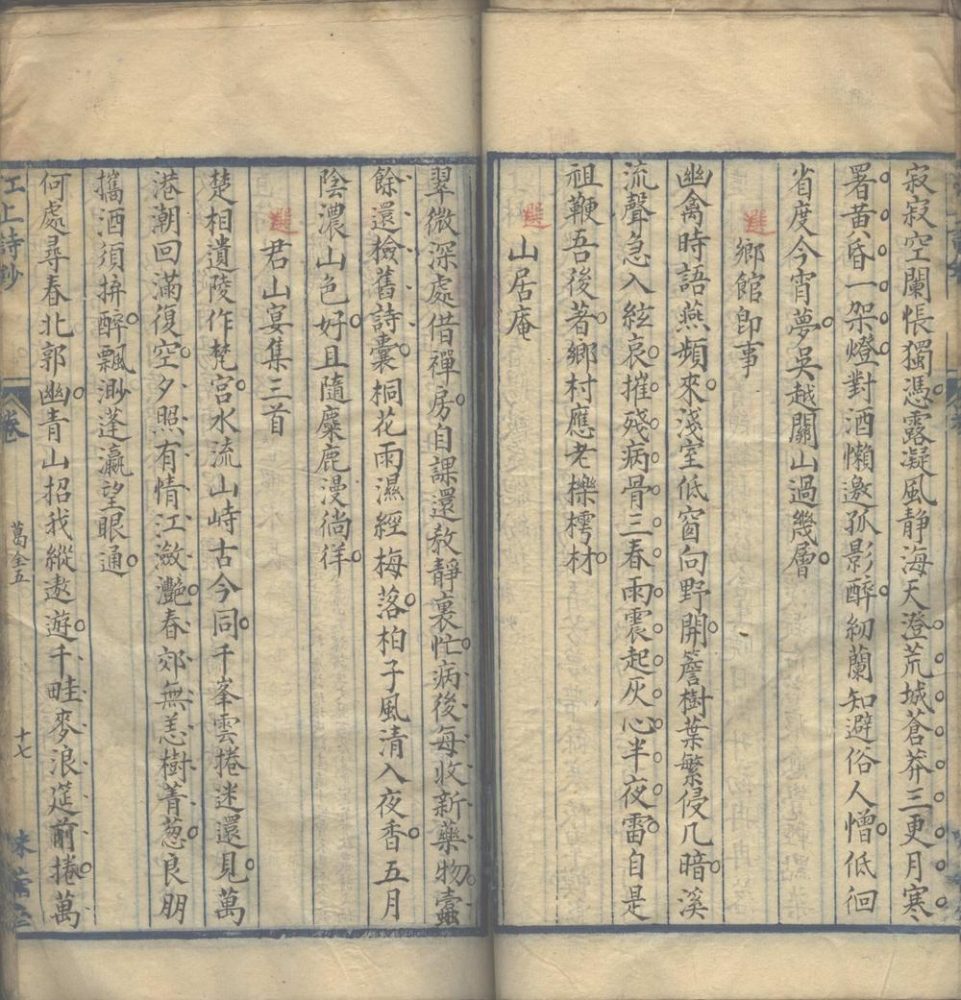 寂寂空闌悵獨憑露凝風靜海天澄荒城蒼莽三更月寒
署黃昏一架燈對酒懶邀孤影醉紉蘭知避俗人憎低徊
省度今宵夢吳越關山過幾層
選
鄉館卽事
幽禽時語燕頻來淺室低窗向野開簷樹葉繁侵几暗溪
流聲急入絃哀摧殘病骨三春雨震起灰心半夜雷自是
祖鞭吾後著鄉村應老櫟樗材
選
山居庵
翠微深處借禪房自課還教靜裏忙病後每收新藥物蠹
餘還檢舊詩囊桐花雨濕經梅落柏子風清入夜香五月
陰濃山色好且隨麋鹿漫徜徉
選
君山宴集三首
楚相遺陵作梵宮水流山峙古今同千峯雲捲迷還見萬
港潮回滿復空夕照有情江瀲灧春郊無恙樹菁葱良朋
攜酒須拚醉飄渺蓬瀛望眼通
何處尋春北郭幽青山招我縱遨遊千畦麥浪筵前捲萬
江上詩鈔
卷
萬全五
十七